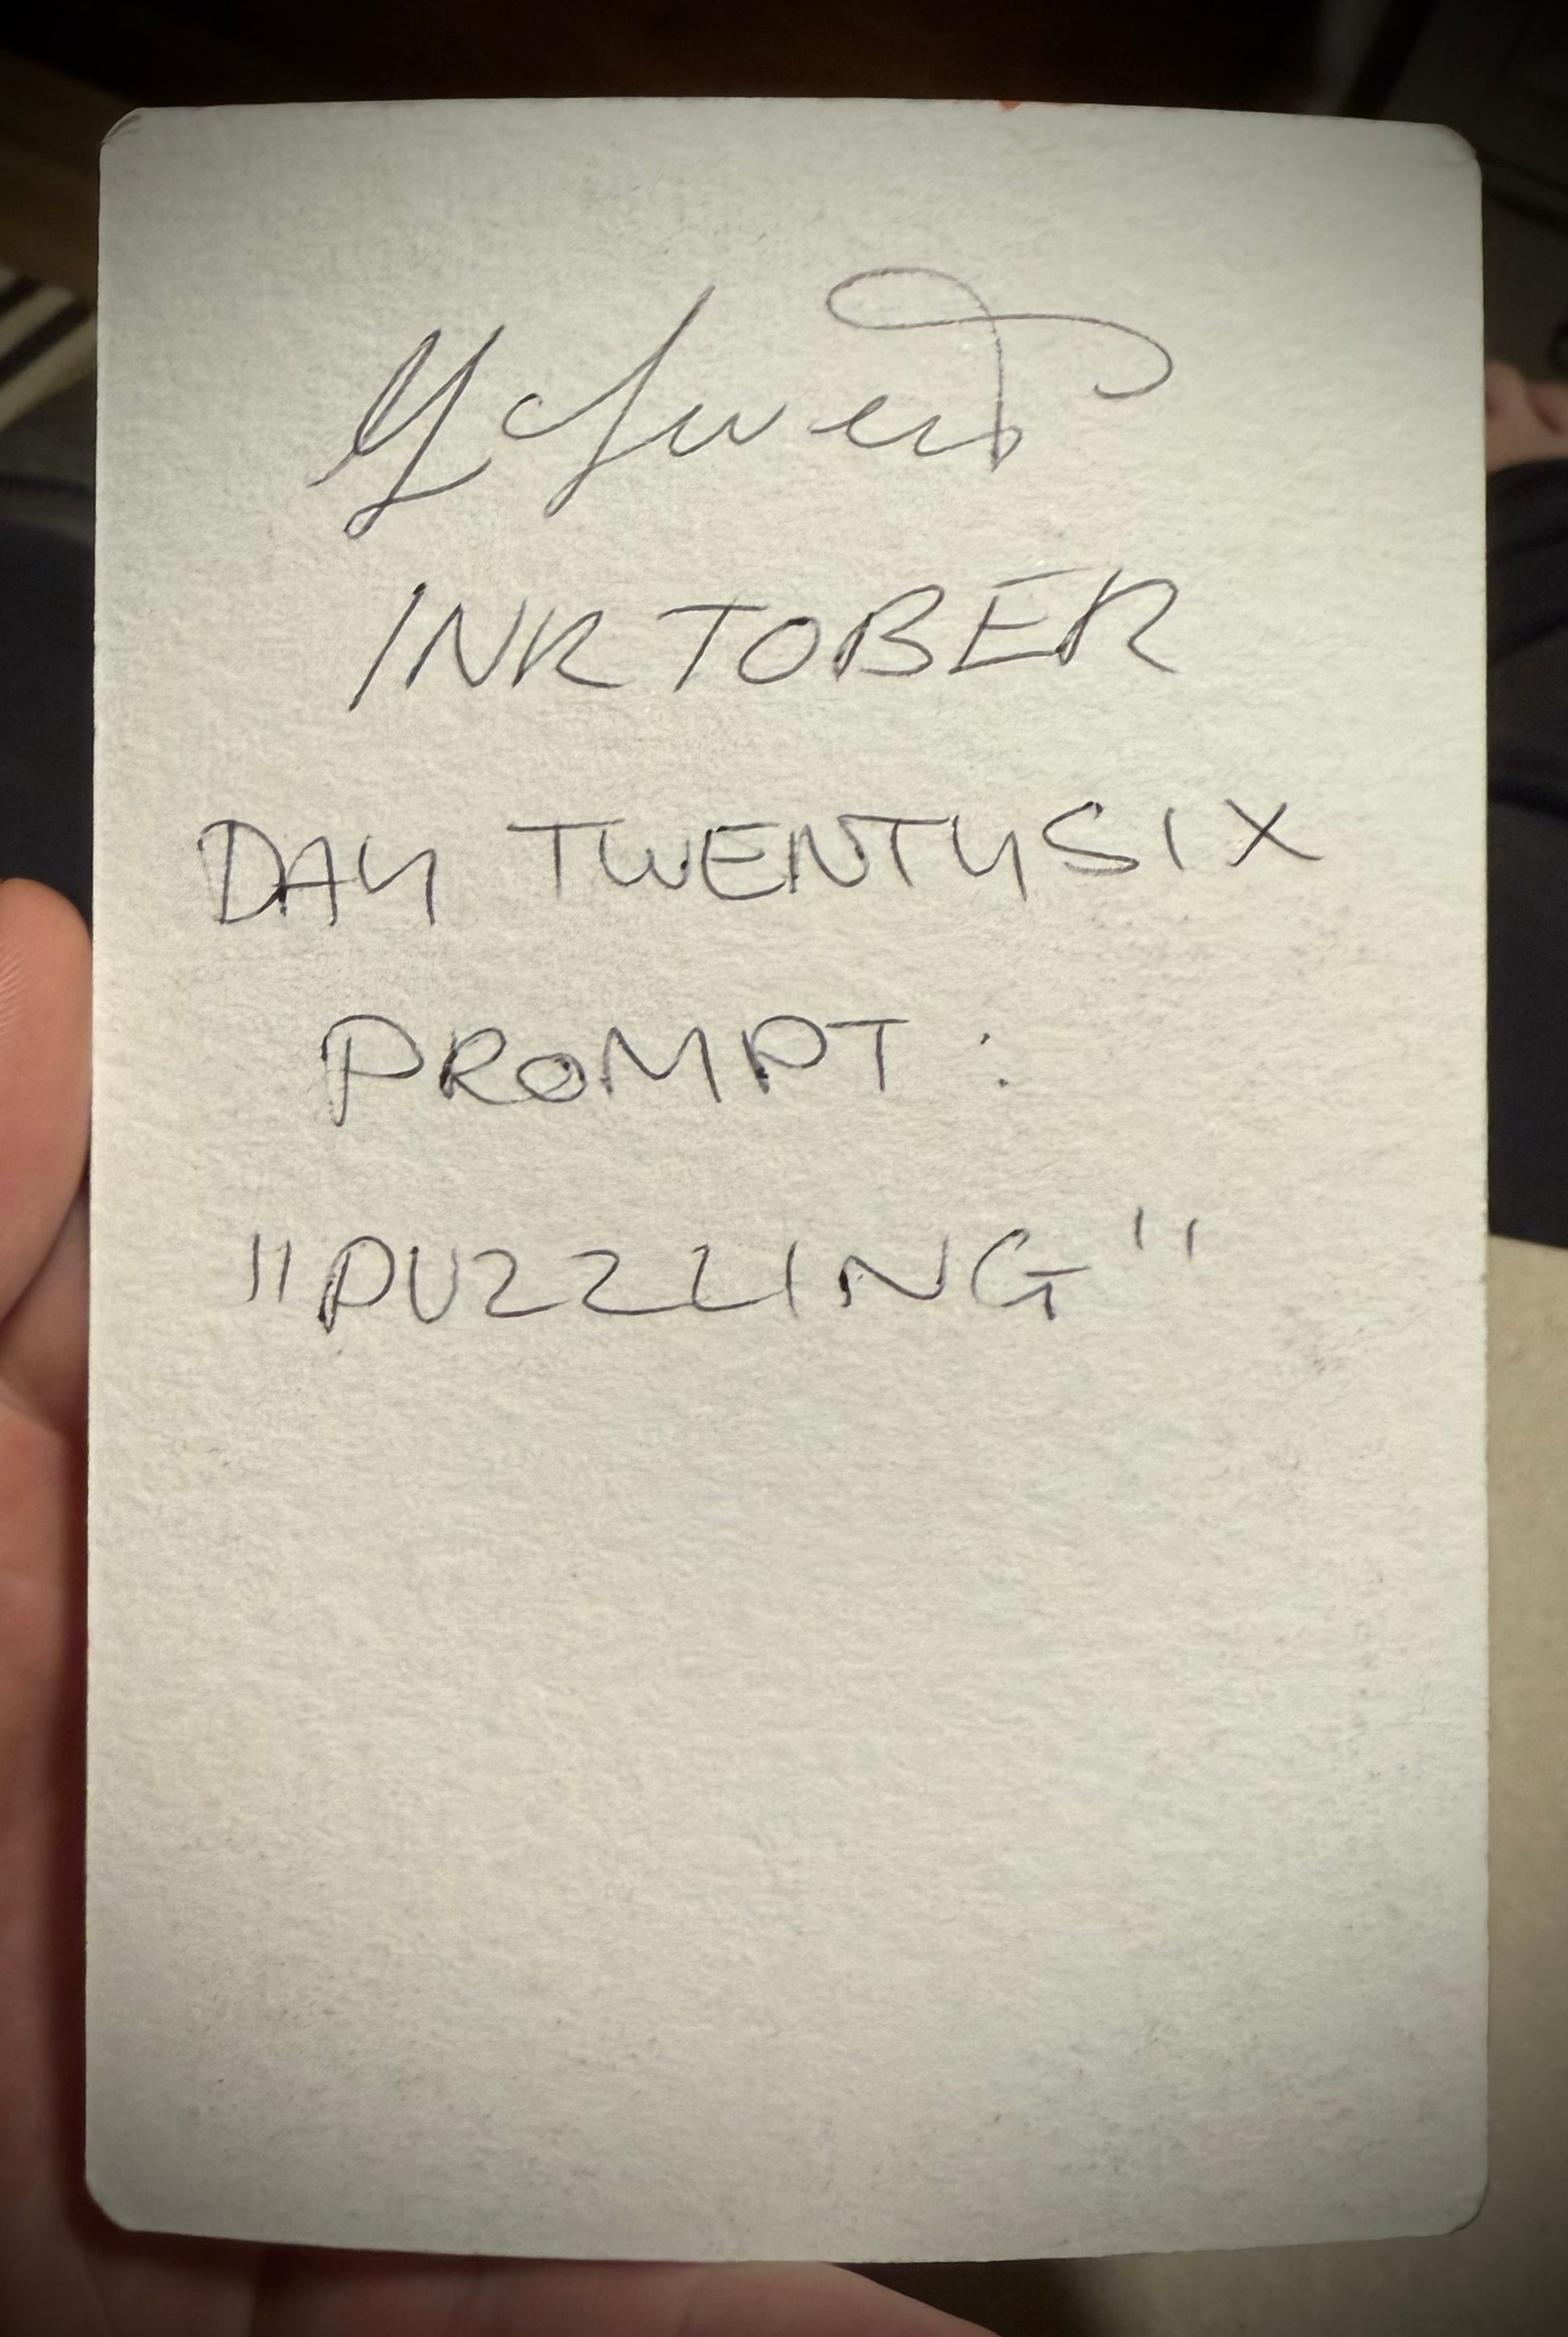 INKTOBER
DAY TWENTYSIX
PROMPT:
"PUZZLING"